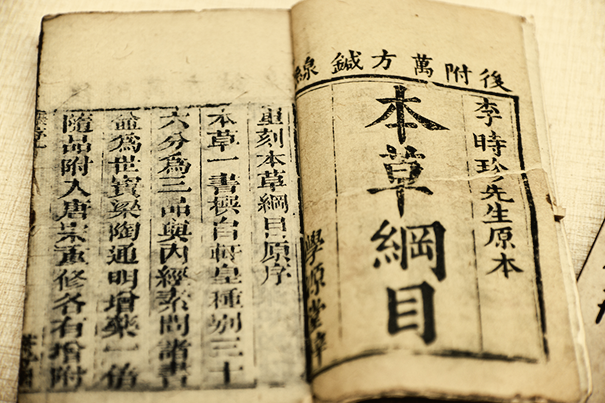 後附萬方鍼線
李時珍先生原本
本草綱目
學原堂梓
重刻本草綱目原序
本草一書自軒皇種別三十
六分為三品與內經素問諸書
並為世寶梁陶通明增藥一倍
隨品附入唐宋重修各有增附